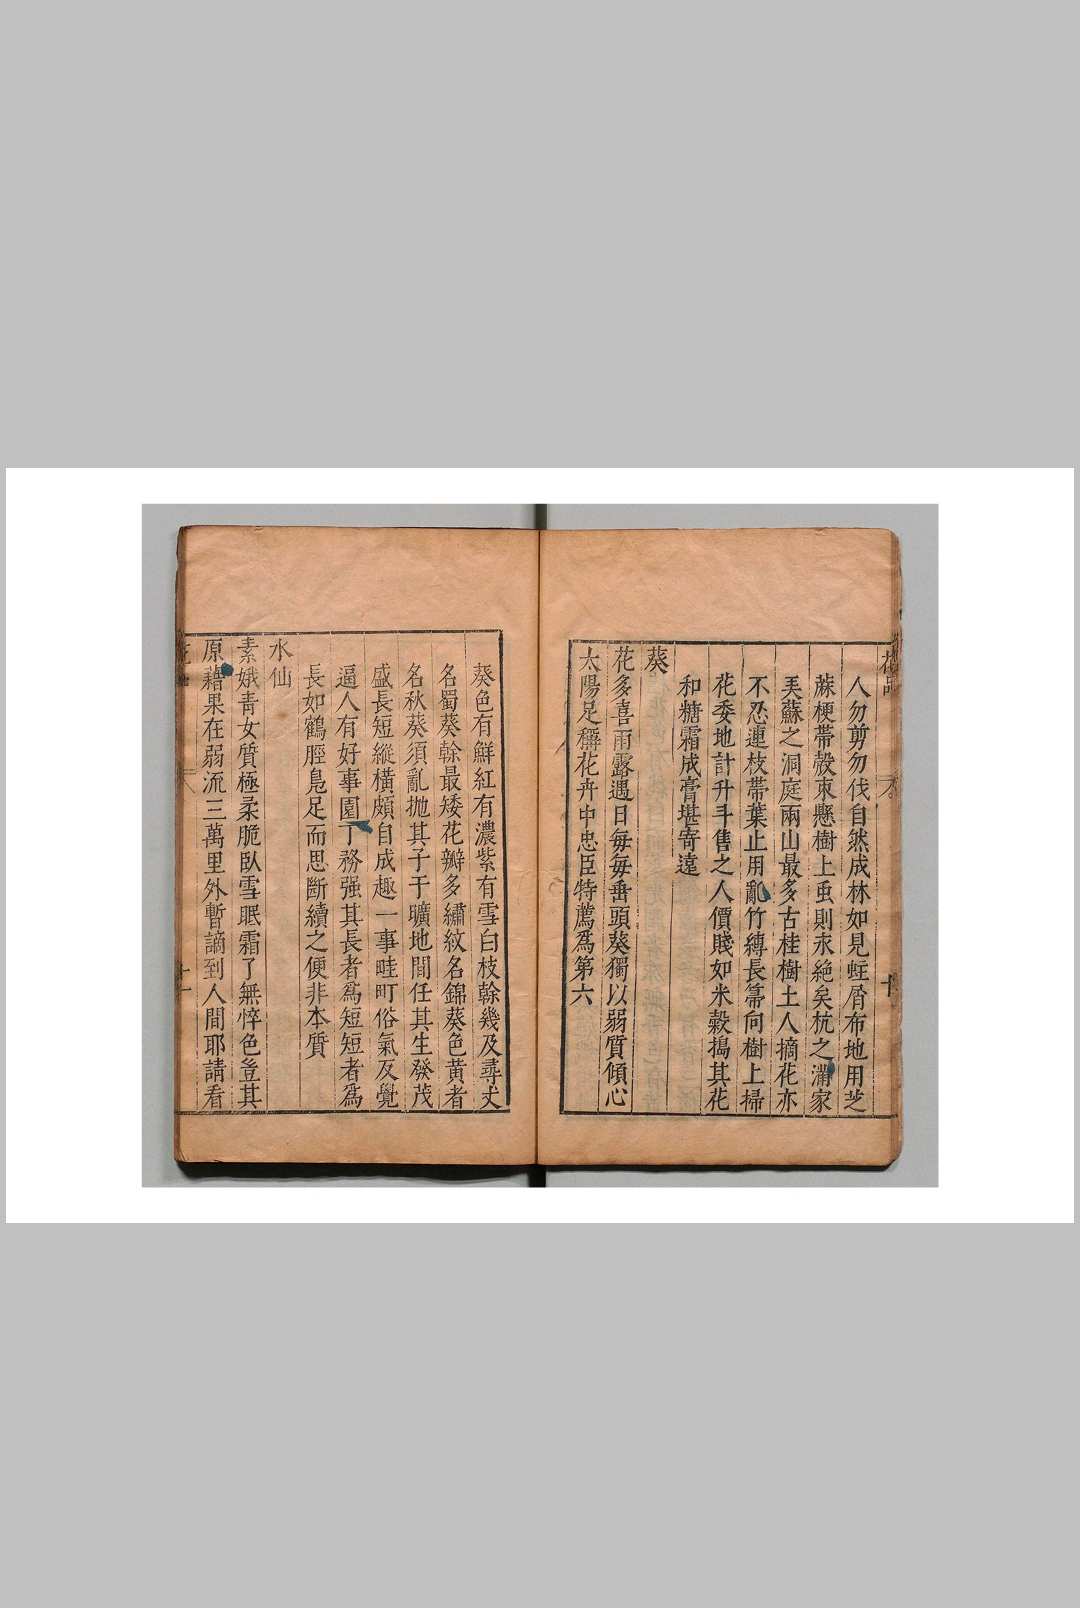 人勿剪勿伐自然成林如見蛀屑布地用芝
蔴梗帶殼朿懸樹上䖝則永絶矣杭之滿家
美蘇之洞庭兩山最多古桂樹土人摘花亦
不忍連枝帶葉止用亂竹縛長箒向樹上掃
花委地計升斗售之人價賤如米榖搗其花
和糖霜成膏堪寄遠
葵
花多喜雨露遇日每每垂頭葵獨以弱質傾心
太陽足稱花卉中忠臣特薦爲第六
葵色有鮮紅有濃紫有雪白枝榦幾及尋丈
名蜀葵榦最矮花瓣多繡紋名錦葵色黄者
名秋葵須亂抛其子于曠地間任其生發茂
盛長短縱橫頗自成趣一事畦町俗氣反覺
逼人有好事園丁務强其長者爲短短者爲
長如鶴脛鳧足而思斷續之便非本質
水仙
素娥青女質極柔脆臥雪眠霜了無悴色豈其
原藉果在弱流三萬里外暫謫到人間耶請看